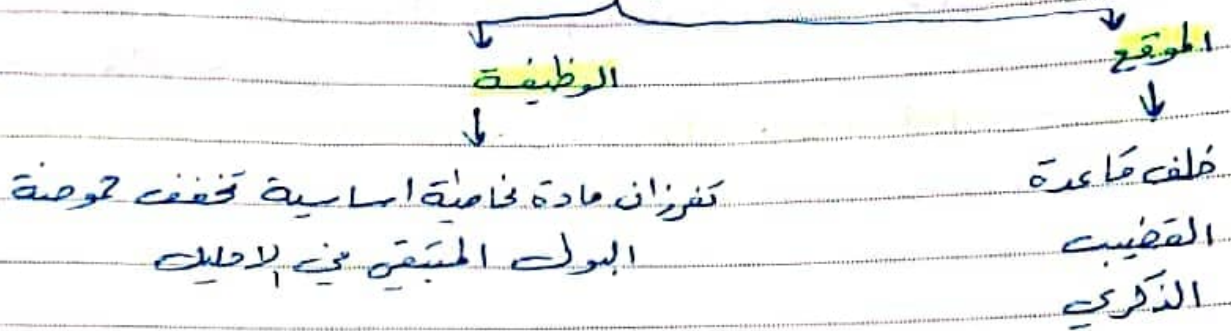 الموقع
الوظيفة
خلف قاعدة
القضيب
الذكري
تفرزان مادة مخاطية اساسية تخفف حموضة
البول المتبقي في الاحليل